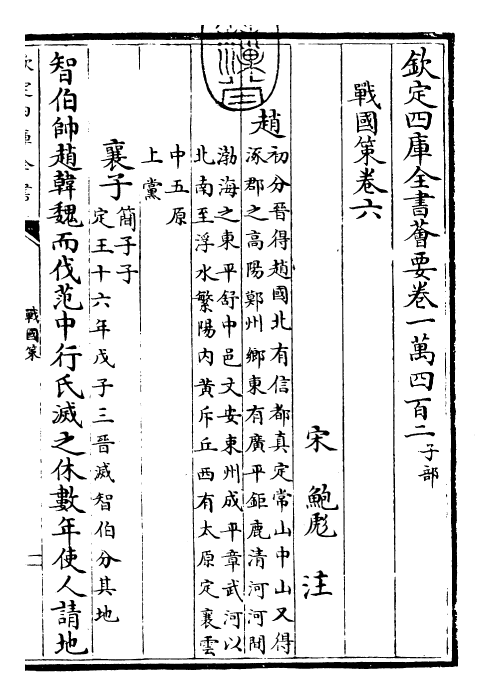 欽定四庫全書薈要卷一萬四百二子部
戰國策卷六
宋鮑彪注
趙初分晉得趙國北有信都真定常山中山又得
涿郡之高陽鄭州鄉東有廣平鉅鹿清河河間
渤海之東平舒中邑文安東州成平章武河以
北南至浮水繁陽內黃斥丘西有太原定襄雲
中五原
上黨
襄子簡子子
定王十六年戊子三晉滅智伯分其地
智伯帥趙韓魏而伐范中行氏滅之休數年使人請地
欽定四庫全書
戰國策
一